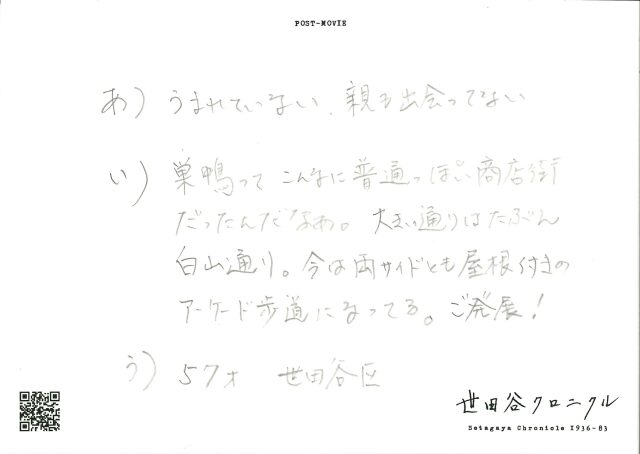 POST-MOVIE
あ) うまれていない、親も出会ってない
い) 巣鴨って こんなに普通っぽい商店街
だったんだなぁ。大きい通りはたぶん
白山通り。今は両サイドとも屋根付きの
アーケード歩道になってる。ご発展!
う) 57才 世田谷区
世田谷クロニクル
Setagaya Chronicle 1936-83